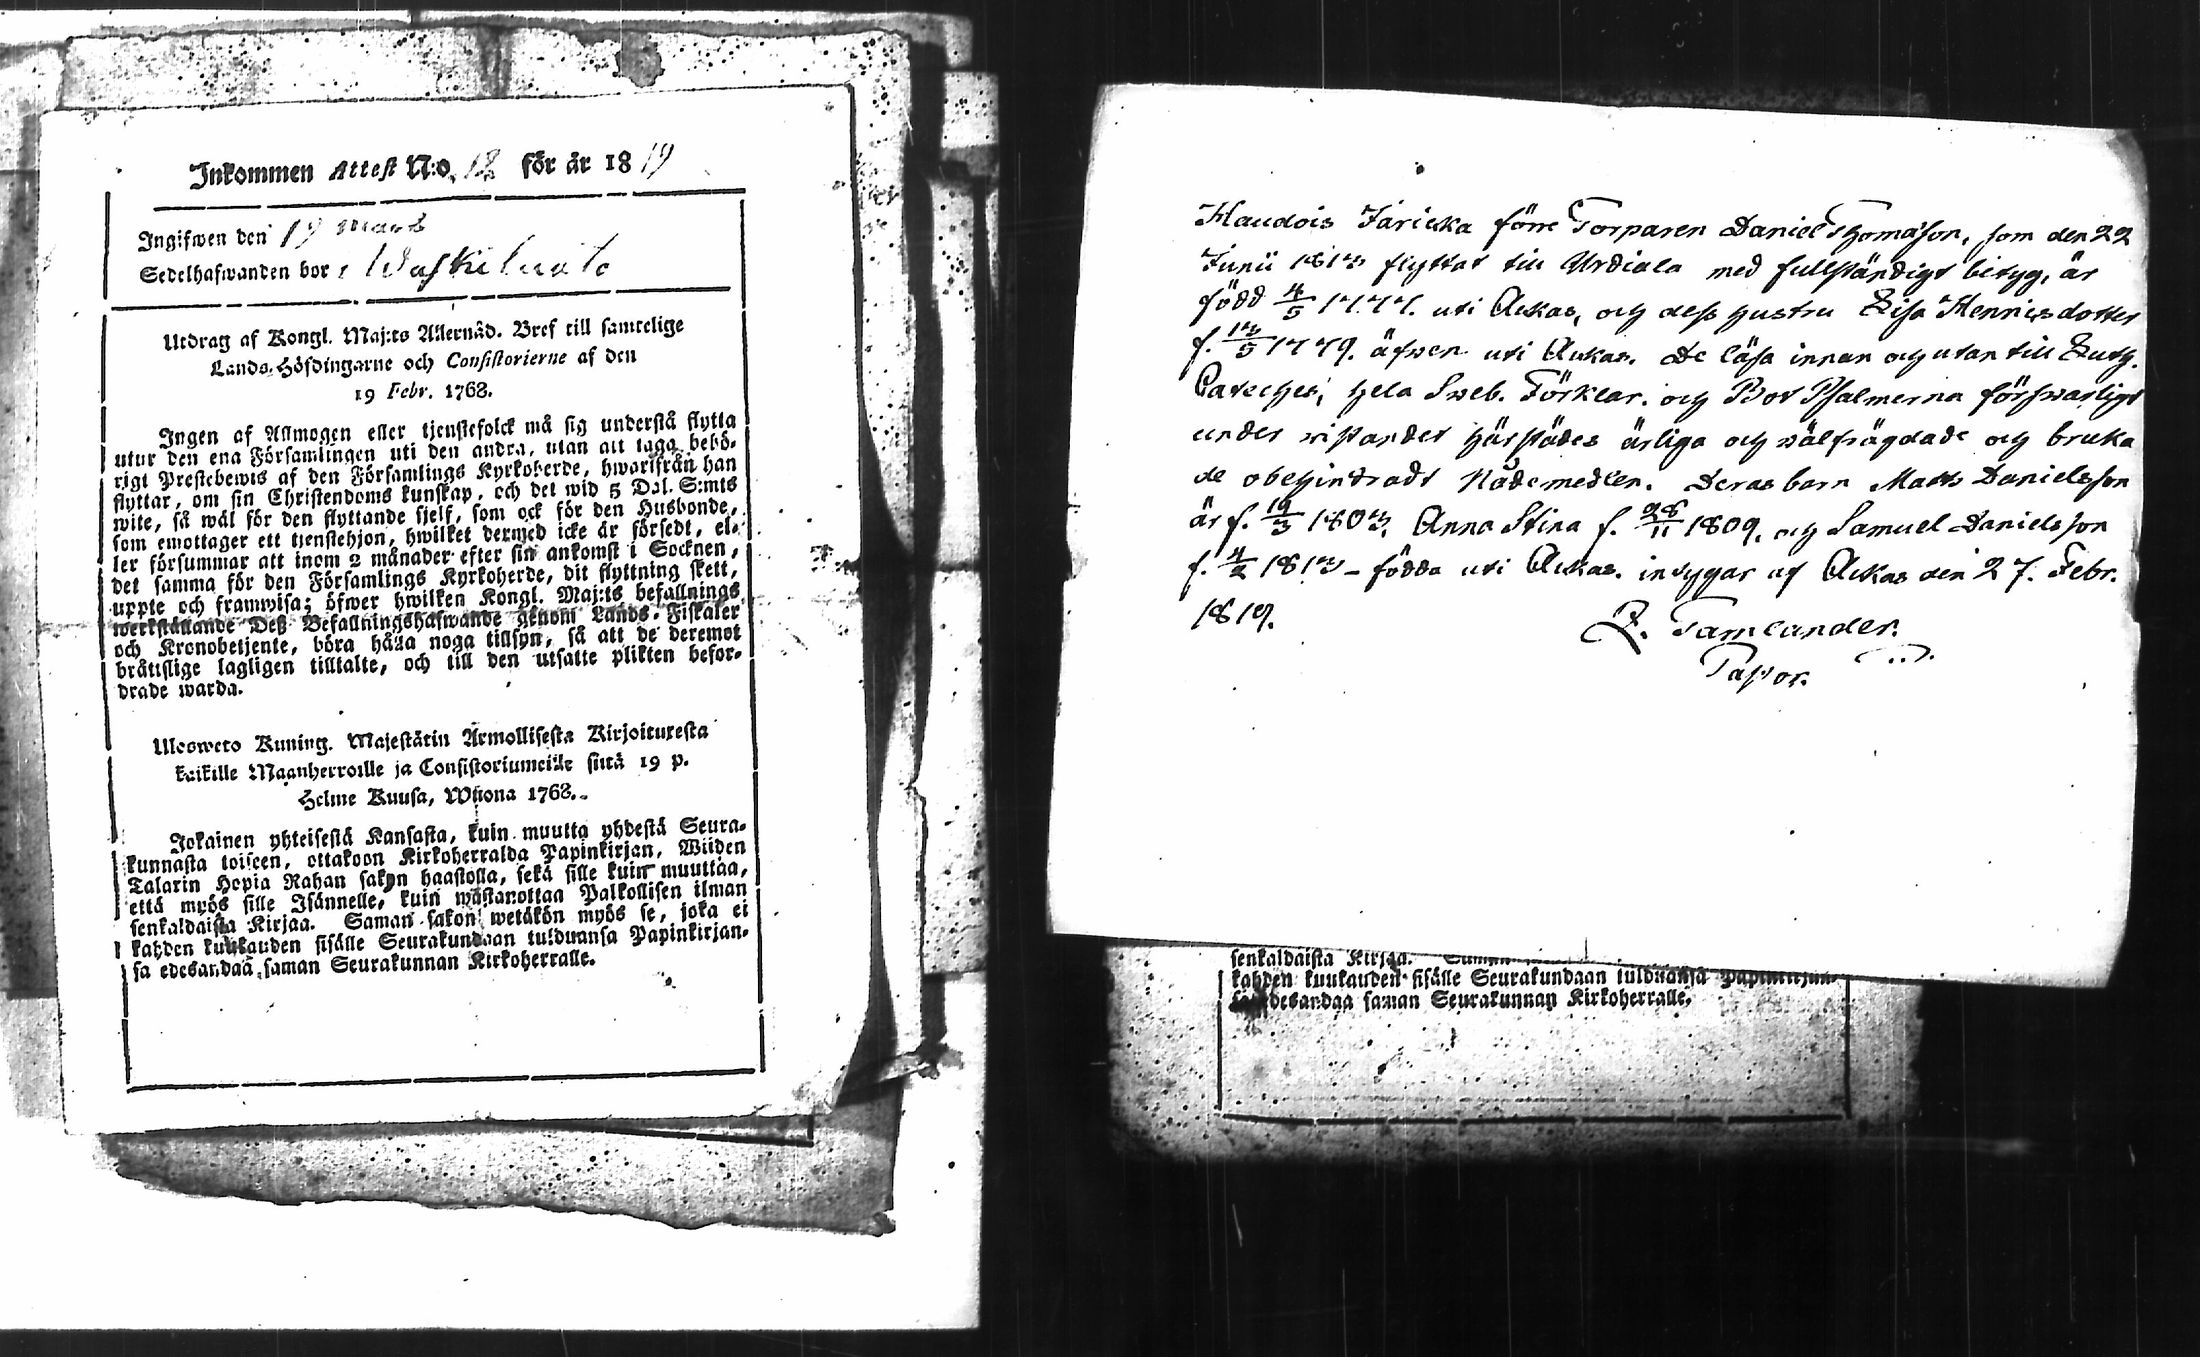 Inkommen Attest N:o 12 för år 1819
Ingifwen den 19 Mars
Sedelhafwanden bor i
Utdrag af Kongl. Maj:ts Allernåd. Bref till samtelige
Lands-Höfdingarne och Consistorierne af den
19 Febr. 1768.
Ingen af Allmogen eller tjenstefolck må sig understå flytta
utur den ena Församlingen uti den andra, utan att taga behö-
rigt Prestebewis af den Församlings Kyrkoherde, hwarifrån han
flyttar, om sin Christendoms kunskap, och det wid 5 Dal. S:mts
wite, så wäl för den flyttande sjelf, som ock för den Husbonde,
som emottager ett tjenstehjon, hwilket dermed icke är försedt, el-
ler försummar att inom 2 månader efter sin ankomst i Socknen,
det samma för den Församlings Kyrkoherde, dit flyttning skett,
uppte och framwisa; öfwer hwilken Kongl. Maj:ts befallnings
werkställande Deß Befallningshafwande genom Lands-Fiskaler
och Kronobetjente, böra hålla noga tillsyn, så att de deremot
bråttslige lagligen tilltalte, och till den utsatte plikten befor-
drade warda.
Ulosweto Kuning. Majestätin Armollisesta Kirjoituxesta
kaikille Maanherroille ja Consistoriumeille siitä 19 p.
Helme Kuusa, Wuona 1768.
Jokainen yhteisestä Kansasta, kuin muutta yhdestä Seura-
kunnasta toiseen, ottakoon Kirkoherralda Papinkirjan, Wiiden
Talarin Hopia Rahan sakon haastolla, sekä sille kuin muuttaa,
että myös sille Isännelle, kuin wastanottaa Palkollisen ilman
senkaldaista Kirjaa. Saman sakon wetäkön myös se, joka ei
kahden kuukauden sisälle Seurakundaan tulduansa Papinkirjan-
sa edesandaa saman Seurakunnan Kirkoherralle.
förre Torparen Daniel Thomasson, som den 22
Junii 1813 flyttat till Urdiala med fullständigt betyg, är
född 4/5 1777. uti Ackas, och dess hustru Lisa Hennicsdotter
f. 13/5 1779. äfwen uti Ackas. De läsa innan och utan till Luth.
Cateches, hela Sweb. Förklar. och Bot Psalmerna förswarligt
under wistandet härstädes ärliga och wälfrägdade och bruka
de obehindradt Nådemedlen. Deras barn Matts Danielsson
är f. 19/3 1803, Anna Stina f. 28/11 1809, och Samuel Danielsson
f. 4/2 1813 - födda uti Ackas. intygar af Ackas den 27. Febr.
1819.
Tamlander.
Pastor.
senkaldaista Kirjaa. Saman
kahden kuukauden sisälle Seurakundaan tulduansa Papinkirjan-
sa edesandaa saman Seurakunnan Kirkoherralle.